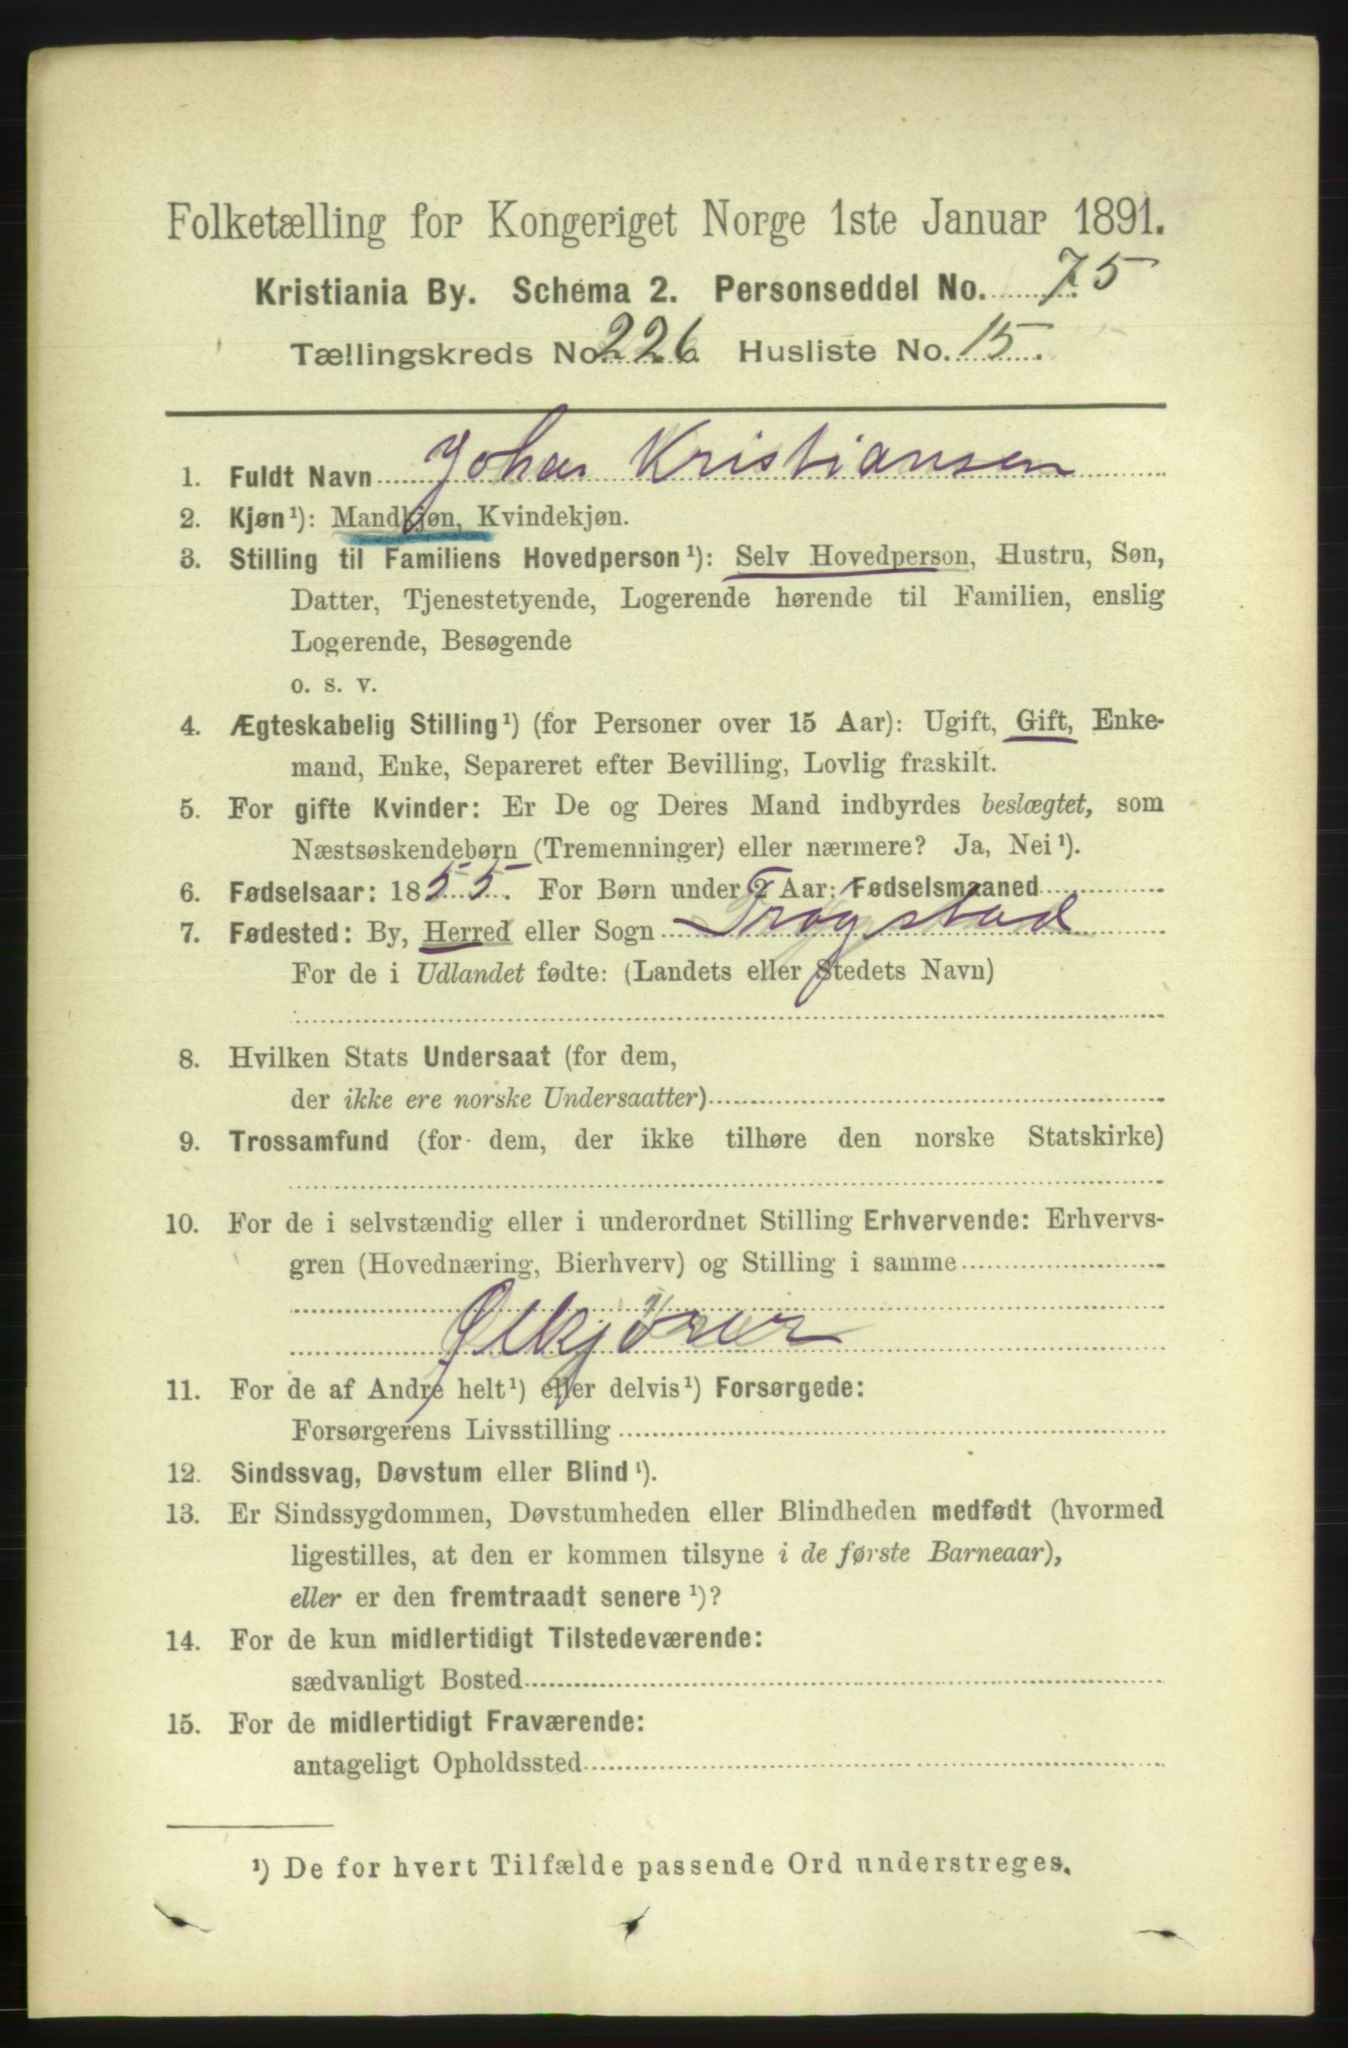 Folketælling for Kongeriget Norge 1ste Januar 1891.
Kristiania By. Schema 2. Personseddel No. 75
Tællingskreds No. 226. Husliste No. 15.
1. Fuldt Navn Johan Kristiansen
2. Kjøn¹): Mandkjøn, Kvindekjøn.
3. Stilling til Familiens Hovedperson¹): Selv Hovedperson, Hustru, Søn,
Datter, Tjenestetyende, Logerende hørende til Familien, enslig
Logerende, Besøgende
o. s. v.
4. Ægteskabelig Stilling¹) (for Personer over 15 Aar): Ugift, Gift, Enke-
mand, Enke, Separeret efter Bevilling, Lovlig fraskilt.
5. For gifte Kvinder: Er De og Deres Mand indbyrdes beslægtet, som
Næstsøskendebørn (Tremenninger) eller nærmere? Ja, Nei¹).
6. Fødselsaar: 1855. For Børn under 2 Aar: Fødselsmaaned
7. Fødested: By, Herred eller Sogn Trøgstad
For de i Udlandet fødte: (Landets eller Stedets Navn)
8. Hvilken Stats Undersaat (for dem,
der ikke ere norske Undersaatter)
9. Trossamfund (for dem, der ikke tilhøre den norske Statskirke)
10. For de i selvstændig eller i underordnet Stilling Erhvervende: Erhvervs-
gren (Hovednæring, Bierhverv) og Stilling i samme
Ølkjører
11. For de af Andre helt¹) eller delvis¹) Forsørgede:
Forsørgerens Livsstilling
12. Sindssvag, Døvstum eller Blind¹).
13. Er Sindssygdommen, Døvstumheden eller Blindheden medfødt (hvormed
ligestilles, at den er kommen tilsyne i de første Barneaar),
eller er den fremtraadt senere¹)?
14. For de kun midlertidigt Tilstedeværende:
sædvanligt Bosted
15. For de midlertidigt Fraværende:
antageligt Opholdssted
¹) De for hvert Tilfælde passende Ord understreges.